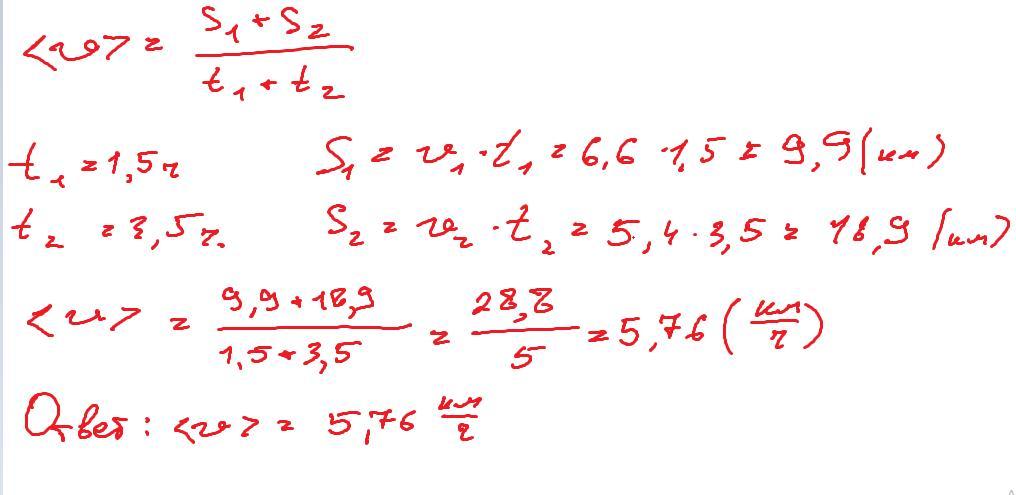 <v> = (S₁ + S₂) / (t₁ + t₂)
t₁ = 1,5 ч S₁ = v₁ · t₁ = 6,6 · 1,5 = 9,9 (км)
t₂ = 3,5 ч. S₂ = v₂ · t₂ = 5,4 · 3,5 = 18,9 (км)
<v> = (9,9 + 18,9) / (1,5 + 3,5) = 28,8 / 5 = 5,76 (км/ч)
Ответ: <v> = 5,76 км/ч